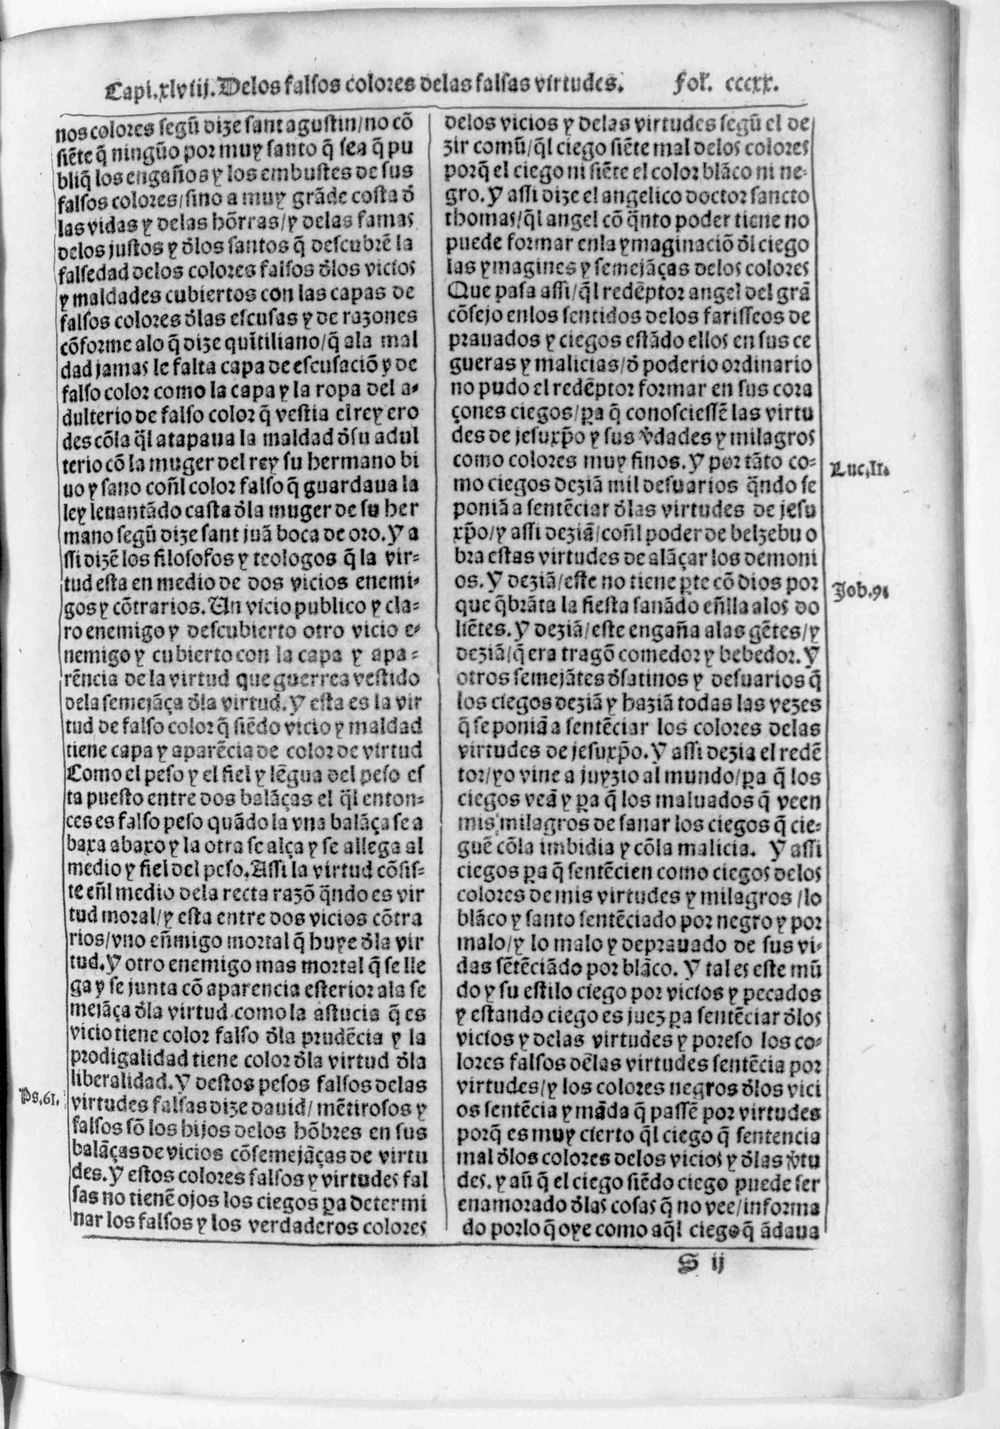 Capi.xlviij. Delos falsos colores delas falsas virtudes. fol. cccxx.
nos colores segũ dize sant agustin/no cõ
siẽte q̃ ningũo por muy santo q̃ sea q̃ pu
bliq̃ los engaños y los embustes de sus
falsos colores/sino a muy grãde costa đ
las vidas y delas hõrras/y delas famas
delos justos y đlos santos q̃ descubrẽ la
falsedad delos colores falsos đlos vicios
y maldades cubiertos con las capas de
falsos colores đlas escusas y de razones
cõforme alo q̃ dize quĩtiliano/q̃ ala mal
dad jamas le falta capa de escusaciõ y de
falso color como la capa y la ropa del a-
dulterio de falso color q̃ vestia el rey ero
des cõla q̃l atapaua la maldad đsu adul
terio cõ la muger del rey su hermano bi
uo y sano coñl color falso q̃ guardaua la
ley leuantãdo casta đla muger de su her
mano segũ dize sant juã boca de oro. Y a
ssi dizẽ los filosofos y teologos q̃ la vir-
tud esta en medio de dos vicios enemi-
gos y cõtrarios. Un vicio publico y cla-
ro enemigo y descubierto otro vicio e-
nemigo y cubierto con la capa y apa-
rẽncia de la virtud que guerrea vestido
dela semejãça đla virtud. Y esta es la vir
tud de falso color q̃ siẽdo vicio y maldad
tiene capa y aparẽcia de color de virtud
Como el peso y el fiel y lẽgua del peso es
ta puesto entre dos balãças el q̃l enton-
ces es falso peso quãdo la vna balãça se a
baxa abaxo y la otra se alça y se allega al
medio y fiel del peso. Assi la virtud cõsis-
te eñl medio dela recta razõ q̃ndo es vir
tud moral/y esta entre dos vicios cõtra
rios/vno eñmigo mortal q̃ huye đla vir
tud. Y otro enemigo mas mortal q̃ se lle
ga y se junta cõ aparencia esterior ala se
mejãça đla virtud como la astucia q̃ es
vicio tiene color falso đla prudẽcia y la
prodigalidad tiene color đla virtud đla
liberalidad. Y destos pesos falsos delas
Ps.61.
virtudes falsas dize dauid/mẽtirosos y
falsos sõ los hijos delos hõbres en sus
balãças de vicios cõ semejãças de virtu
des. Y estos colores falsos y virtudes fal
sas no tienẽ ojos los ciegos p̱a determi
nar los falsos y los verdaderos colores
delos vicios y delas virtudes segũ el de
zir comũ/q̃l ciego siẽte mal delos colores
porq̃ el ciego ni siẽte el color blãco ni ne-
gro. Y assi dize el angelico doctor sancto
thomas/q̃l angel cõ q̃nto poder tiene no
puede formar enla ymaginaciõ đl ciego
las ymagines y semejãças delos colores
Que pasa assi/q̃l redẽptor angel del grã
cõsejo enlos sentidos delos farisseos de
prauados y ciegos estãdo ellos en sus ce
gueras y malicias/đ poderio ordinario
no pudo el redẽptor formar en sus cora
çones ciegos/p̱a q̃ conosciessẽ las virtu
des de jesuxp̃o y sus v̾dades y milagros
como colores muy finos. Y por tãto co-
Luc.11.
mo ciegos deziã mil desuarios q̃ndo se
poniã a sentẽciar đlas virtudes de jesu
xp̃o/y assi deziã/coñl poder de belzebu o
bra estas virtudes de alãçar los demoni
os. Y deziã/este no tiene p̱te cõ dios por
Joh.9.
que q̃brãta la fiesta sanãdo eñlla alos do
liẽtes. Y deziã/este engaña alas gẽtes/y
deziã/q̃ era tragõ comedor y bebedor. Y
otros semejãtes đsatinos y desuarios q̃
los ciegos deziã y haziã todas las vezes
q̃ se poniã a sentẽciar los colores delas
virtudes de jesuxp̃o. Y assi dezia el redẽ
tor/yo vine a juyzio al mundo/p̱a q̃ los
ciegos veã y p̱a q̃ los maluados q̃ veen
mis milagros de sanar los ciegos q̃ cie-
guẽ cõla imbidia y cõla malicia. Y assi
ciegos p̱a q̃ sentẽcien como ciegos delos
colores de mis virtudes y milagros/lo
blãco y santo sentẽciado por negro y por
malo/y lo malo y deprauado de sus vi-
das sẽtẽciãdo por blãco. Y tal es este mũ
do y su estilo ciego por vicios y pecados
y estando ciego es juez p̱a sentẽciar đlos
vicios y delas virtudes y poreso los co-
lores falsos dẽlas virtudes sentẽcia por
virtudes/y los colores negros đlos vici
os sentẽcia y mãda q̃ passẽ por virtudes
porq̃ es muy cierto q̃l ciego q̃ sentencia
mal đlos colores delos vicios y đlas v̾tu
des. y aũ q̃ el ciego siẽdo ciego puede ser
enamorado đlas cosas q̃ no vee/informa
do porlo q̃ oye como aq̃l ciego q̃ ãdaua
S ij